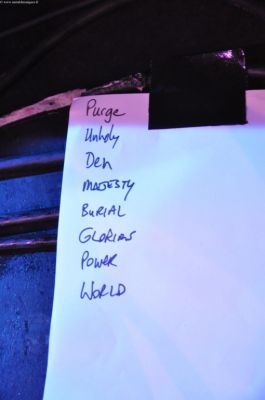 © www.metalchroniques.fr
Purge
Unholy
Den
MAJESTY
BURIAL
GLORIOUS
POWER
WORLD